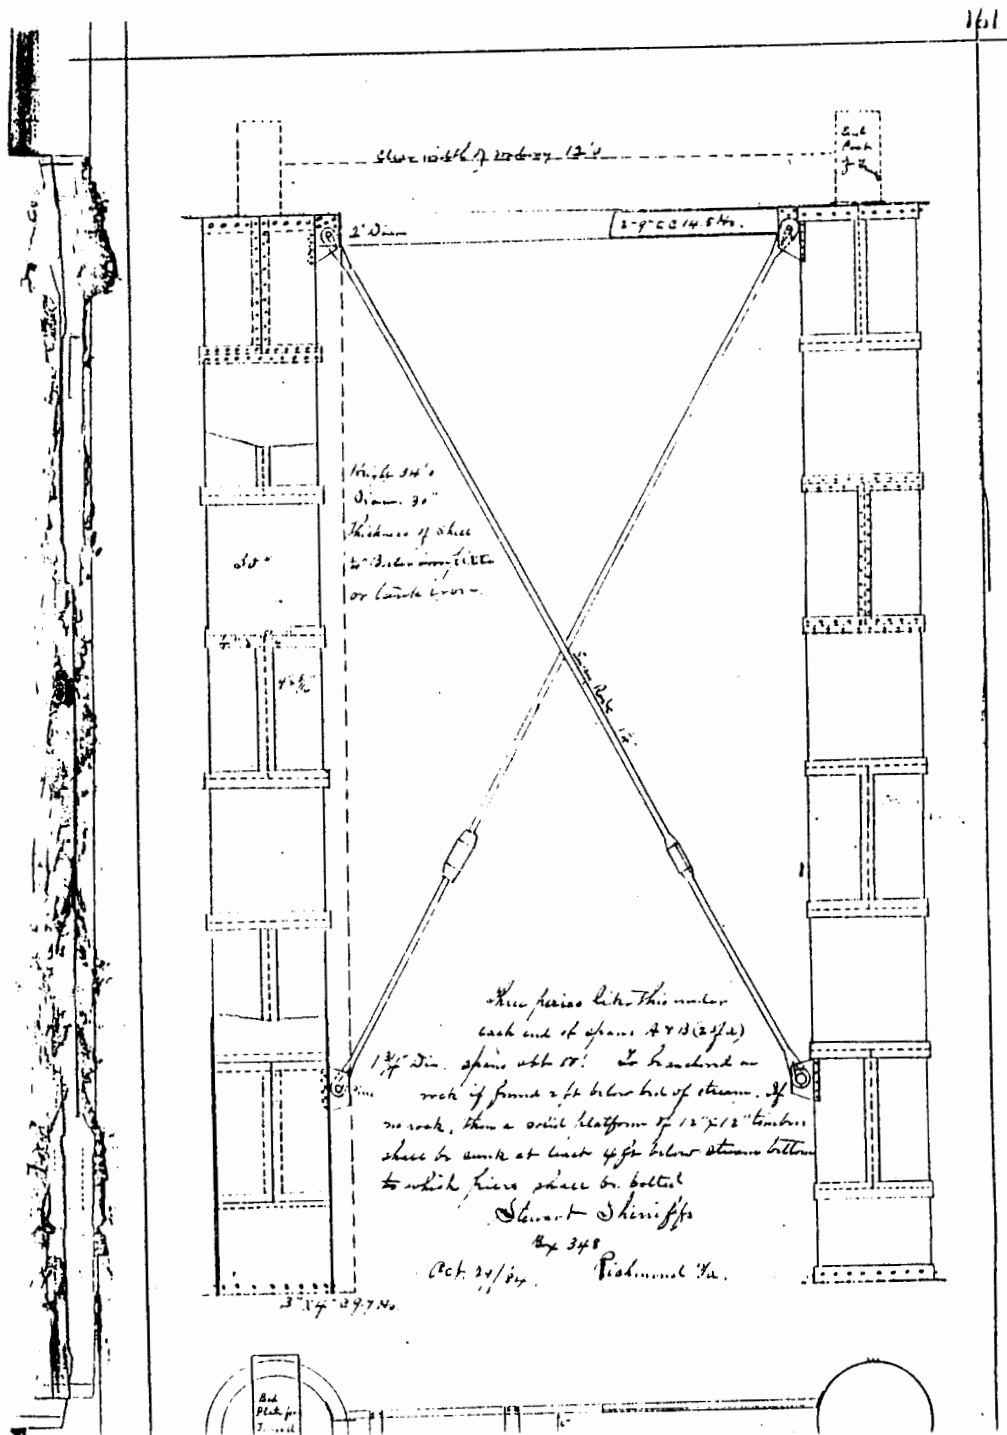 161
Clear width of roadway 12'0
End
Post
of
2" Diam
2-9" [s @ 14.5 lbs.
Height 24'0
Diam. 30"
Thickness of Shell
or
30"
Sway Rods
Three piers like this under
each end of spans A & B
1 3/4" Din. spans abt To be anchored on
rock if found 2 ft below bed of stream. If
no rock, then a solid platform of 12" x 12" timbers
shall be sunk at least 4 ft below stream bottom
to which piers shall be bolted
Stewart Shirriffs
Box 348
Oct. 24/84. Richmond Va.
3" x 4" @ 9.7 lbs
Bed
Plate for